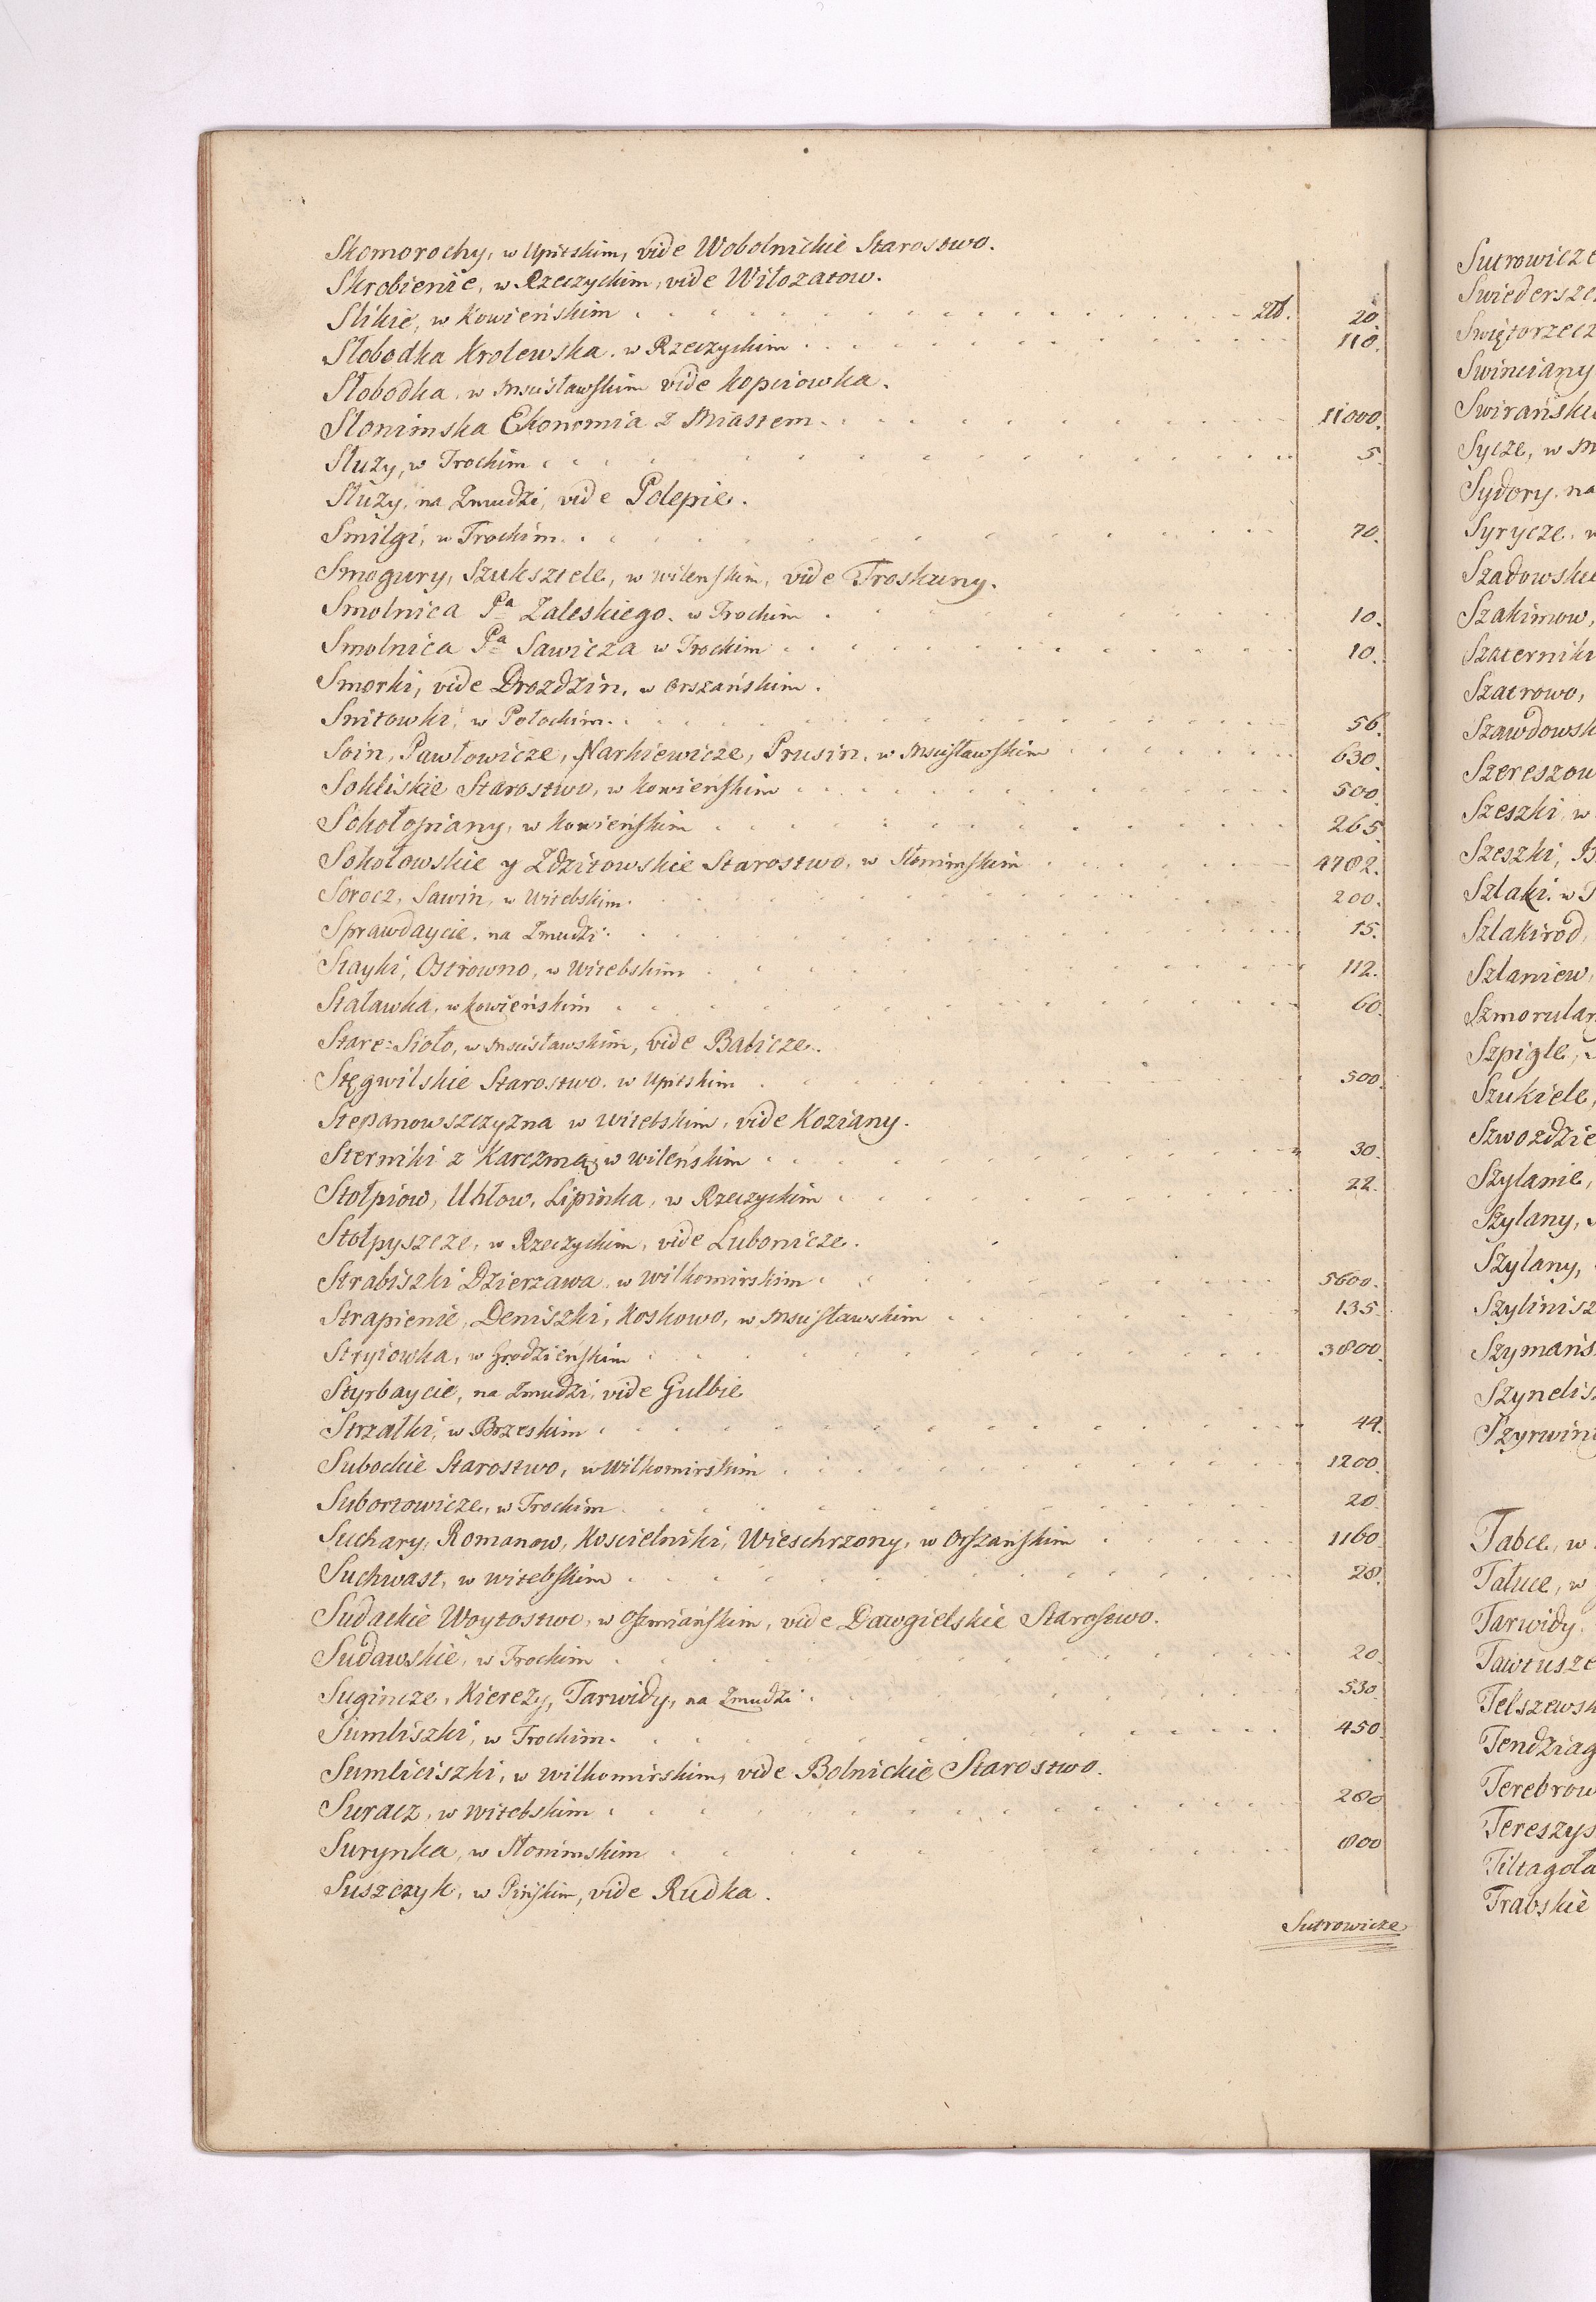 Skomorochy, w Upitskim, vide Wobolnickie Starostwo.
Skrobienie, w Rzeczyckim, vide Witozatow.
Slikie, w Kowieńskim . . . złł. 20.
Słobodka Krolewska. w Rzeczyckim . . . 110.
Słobodka, w Mscisławskim vide Kopciowka.
Słonimska Ekonomia z Miastem . . . 11000.
Słuzy, w Trockim . . . 5.
Słuzy, na Zmudzi, vide Polepie.
Smilgi, w Trockim . . . 70.
Smogury, Szuksztele, w Wilenskim, vide Troskuny.
Smolnica Pa Zaleskiego. w Trockim . . . 10.
Smolnica Pa Sawicza w Trockim . . . 10.
Smorki, vide Drozdzin, w Orszańskim.
Snitowki, w Połockim . . . 56.
Soin, Pawłowicze, Narkiewicze, Prusin, w Mscisławskim . . . 630.
Sokliskie Starostwo, w Kowieńskim . . . 500.
Sokołopiany, w Kowieńskim . . . 265.
Sokołowskie y Zdzitowskie Starostwo, w Słonimskim . . . 4782.
Sorocz, Sawin, w Witebskim . . . 200.
Sprawdaycie. na Zmudzi . . . 15.
Stayki, Ostrowno, w Witebskim . . . 112.
Staławka, w Kowieńskim . . . 60.
Stare=Sioło, w Mscisławskim, vide Babicze.
Stęgwilskie Starostwo. w Upitskim . . . 500.
Stepanowszczyzna w Witebskim, vide Koziany.
Sterniki z Karczmą, w Wileńskim . . . 30.
Stołpiow, Uhłow, Lipinka, w Rzeczyckim . . . 22.
Stołpyszcze, w Rzeczyckim, vide Lubonicze.
Strabiszki Dzierzawa w Wiłkomirskim . . . 5600.
Strapienie, Deniszki, Koskowo, w Mscisławskim . . . 135.
Stryiowka, w Grodzieńskim . . . 3800.
Styrbaycie, na Zmudzi, vide Gulbie
Strzałki, w Brzeskim . . . 44.
Subockie Starostwo, w Wiłkomirskim . . . 1200.
Subortowicze, w Trockim . . . 20.
Suchary, Romanow, Koscielniki, Wieschrzony, w Orszańskim . . . 1160.
Suchwast, w Witebskim . . . 28.
Sudackie Woytostwo, w Oszmiańskim, vide Dawgielskie Starostwo.
Sudawskie, w Trockim . . . 20.
Sugincze, Kierezy, Tarwidy, na Zmudzi . . . 530.
Sumliszki, w Trockim . . . 450.
Sumliciszki, w Wilkomirskim, vide Bolnickie Starostwo.
Suracz, w Witebskim . . . 280
Surynka, w Słonimskim . . . 800
Suszczyk, w Pińskim, vide Rudka.
Sutrowicze
Sutrowicze
Swięto
Swirański
Sycze, w
Sydory. na
Syrycze,
Szakinow,
Szaterniki
Szatrowo,
Szeszki, w
Szeszki,
Szlaki. w
Szlakirod,
Szlaniew,
Szpigle,
Szukiele,
Szylanie,
Szylany,
Szylany,
Tabce, w
Tałuce, w
Tarwidy.
Trabskie